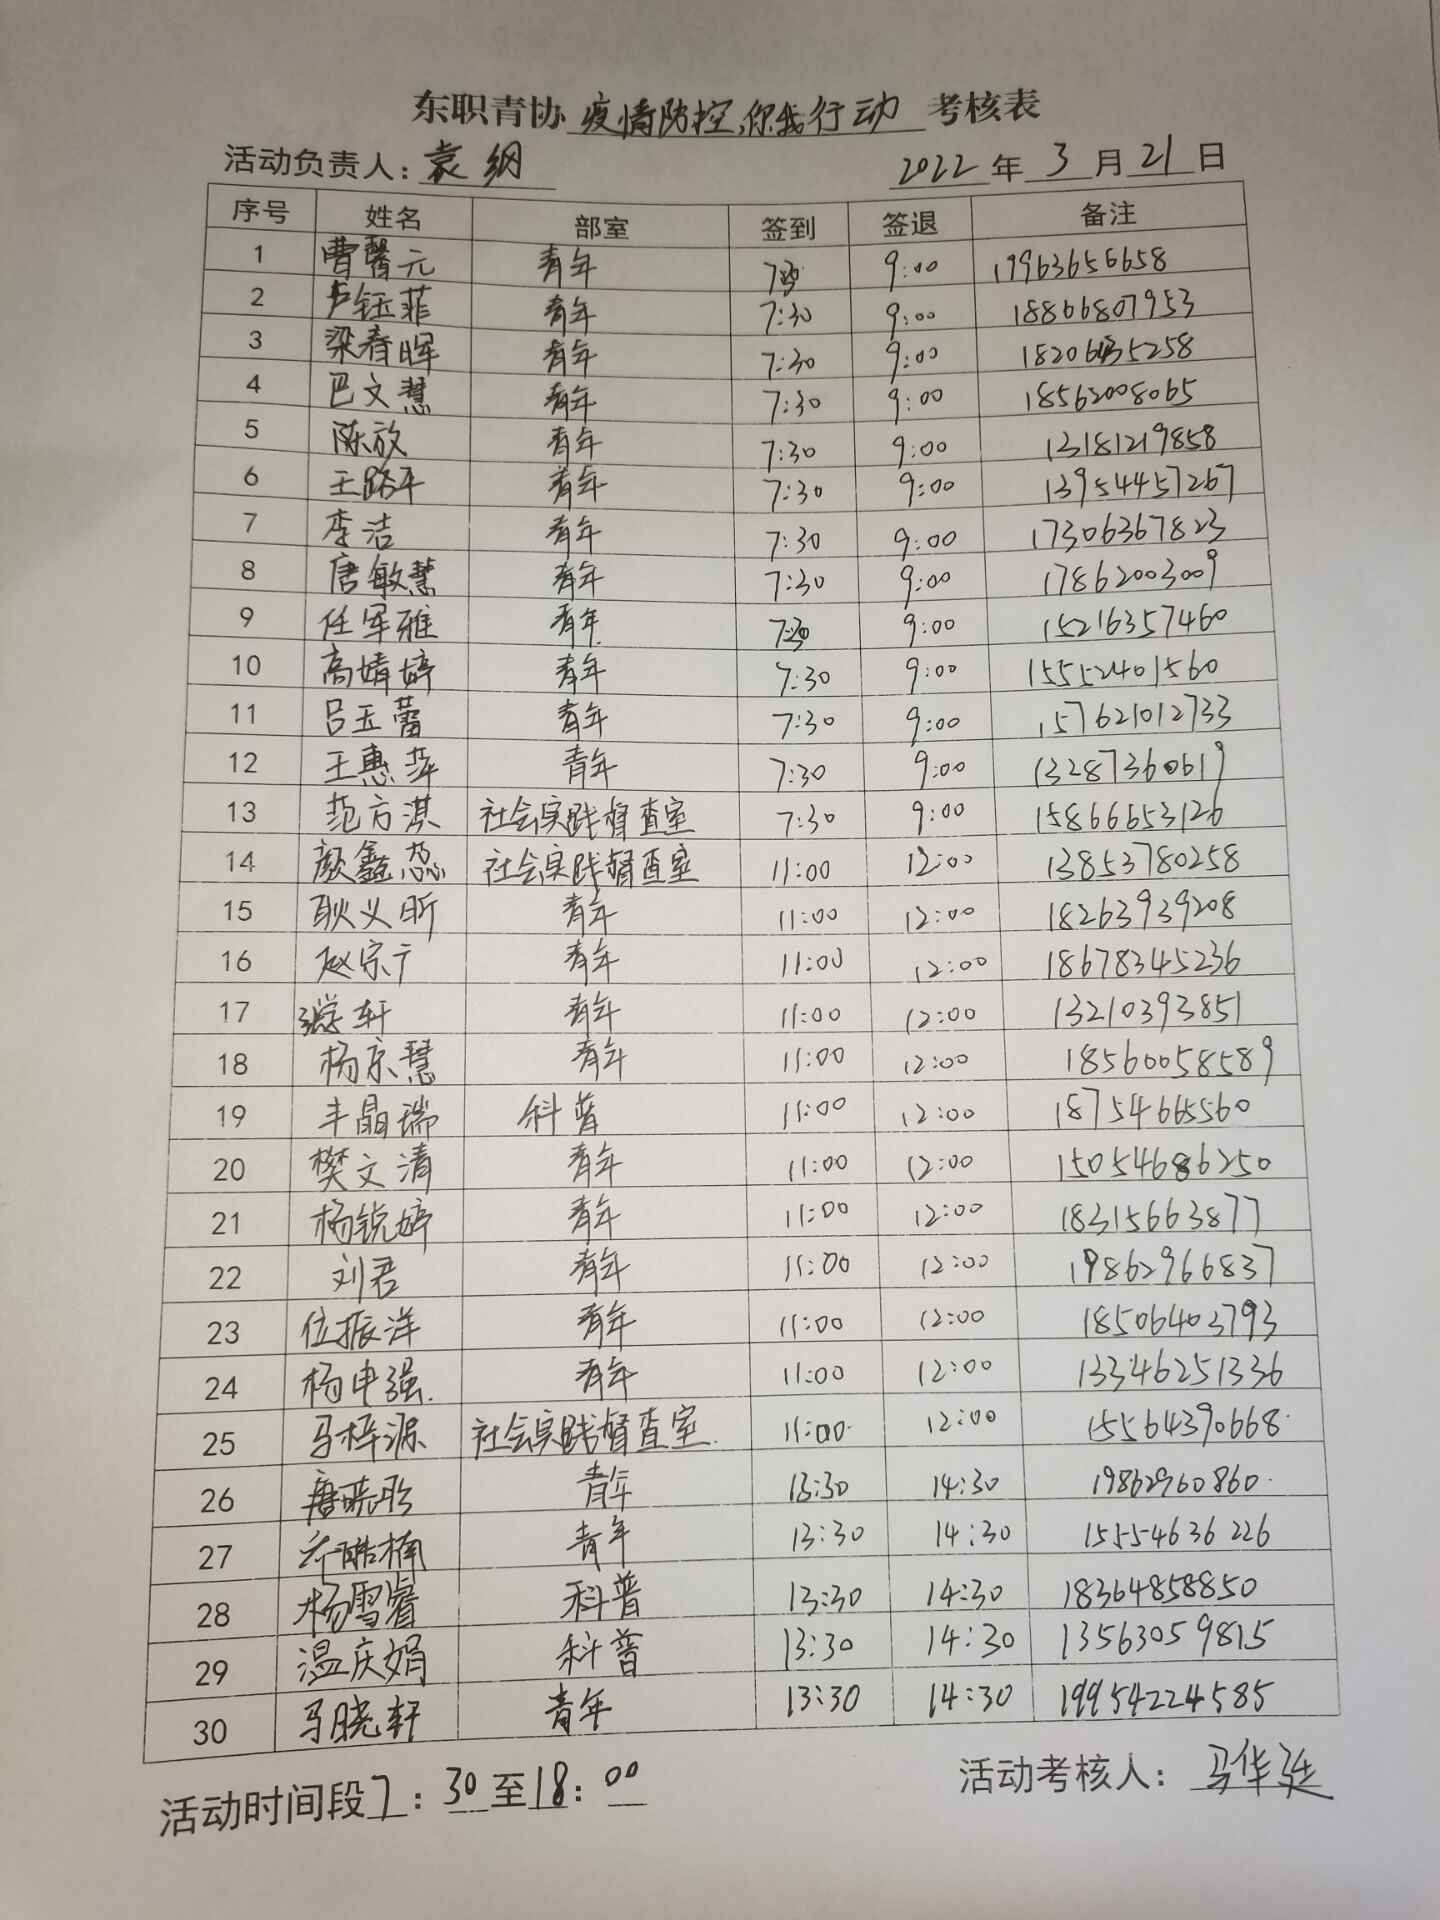 东职青协 疫情防控,你我行动 考核表
活动负责人: 袁纲 2022 年 3 月 21 日
序号 姓名 部室 签到 签退 备注
1 曹馨元 青年 7:30 9:00 19963656658
2 卢钰菲 青年 7:30 9:00 18866807953
3 梁春晖 青年 7:30 9:00 18206435258
4 巴文慧 青年 7:30 9:00 18562008065
5 陈放 青年 7:30 9:00 13181219858
6 王路平 青年 7:30 9:00 13954457267
7 李洁 青年 7:30 9:00 17306367823
8 唐敏慧 青年 7:30 9:00 17862003009
9 任军雅 青年 7:30 9:00 15216357460
10 高婧婷 青年 7:30 9:00 15552401560
11 吕玉蕾 青年 7:30 9:00 157621012733
12 王惠萍 青年 7:30 9:00 13287360619
13 范方淇 社会实践督查室 7:30 9:00 15866653126
14 颜鑫蕊 社会实践督查室 11:00 12:00 13853780258
15 耿义昕 青年 11:00 12:00 18263939208
16 赵宗广 青年 11:00 12:00 18678345236
17 轩 青年 11:00 12:00 13210393851
18 杨京慧 青年 11:00 12:00 18560058589
19 丰晶瑞 科普 11:00 12:00 18754665560
20 樊文清 青年 11:00 12:00 15054686250
21 杨锐婷 青年 11:00 12:00 18315663877
22 刘君 青年 11:00 12:00 19862966837
23 位振洋 青年 11:00 12:00 18506403793
24 杨申强 青年 11:00 12:00 13346251336
25 马梓源 社会实践督查室 11:00 12:00 15564390668
26 唐晓彤 青年 13:30 14:30 19862960860
27 乔皓楠 青年 13:30 14:30 15554636226
28 杨雪睿 科普 13:30 14:30 18364858850
29 温庆娟 科普 13:30 14:30 13563059815
30 马晓轩 青年 13:30 14:30 19954224585
活动时间段 7:30 至 18:00 活动考核人: 马华廷